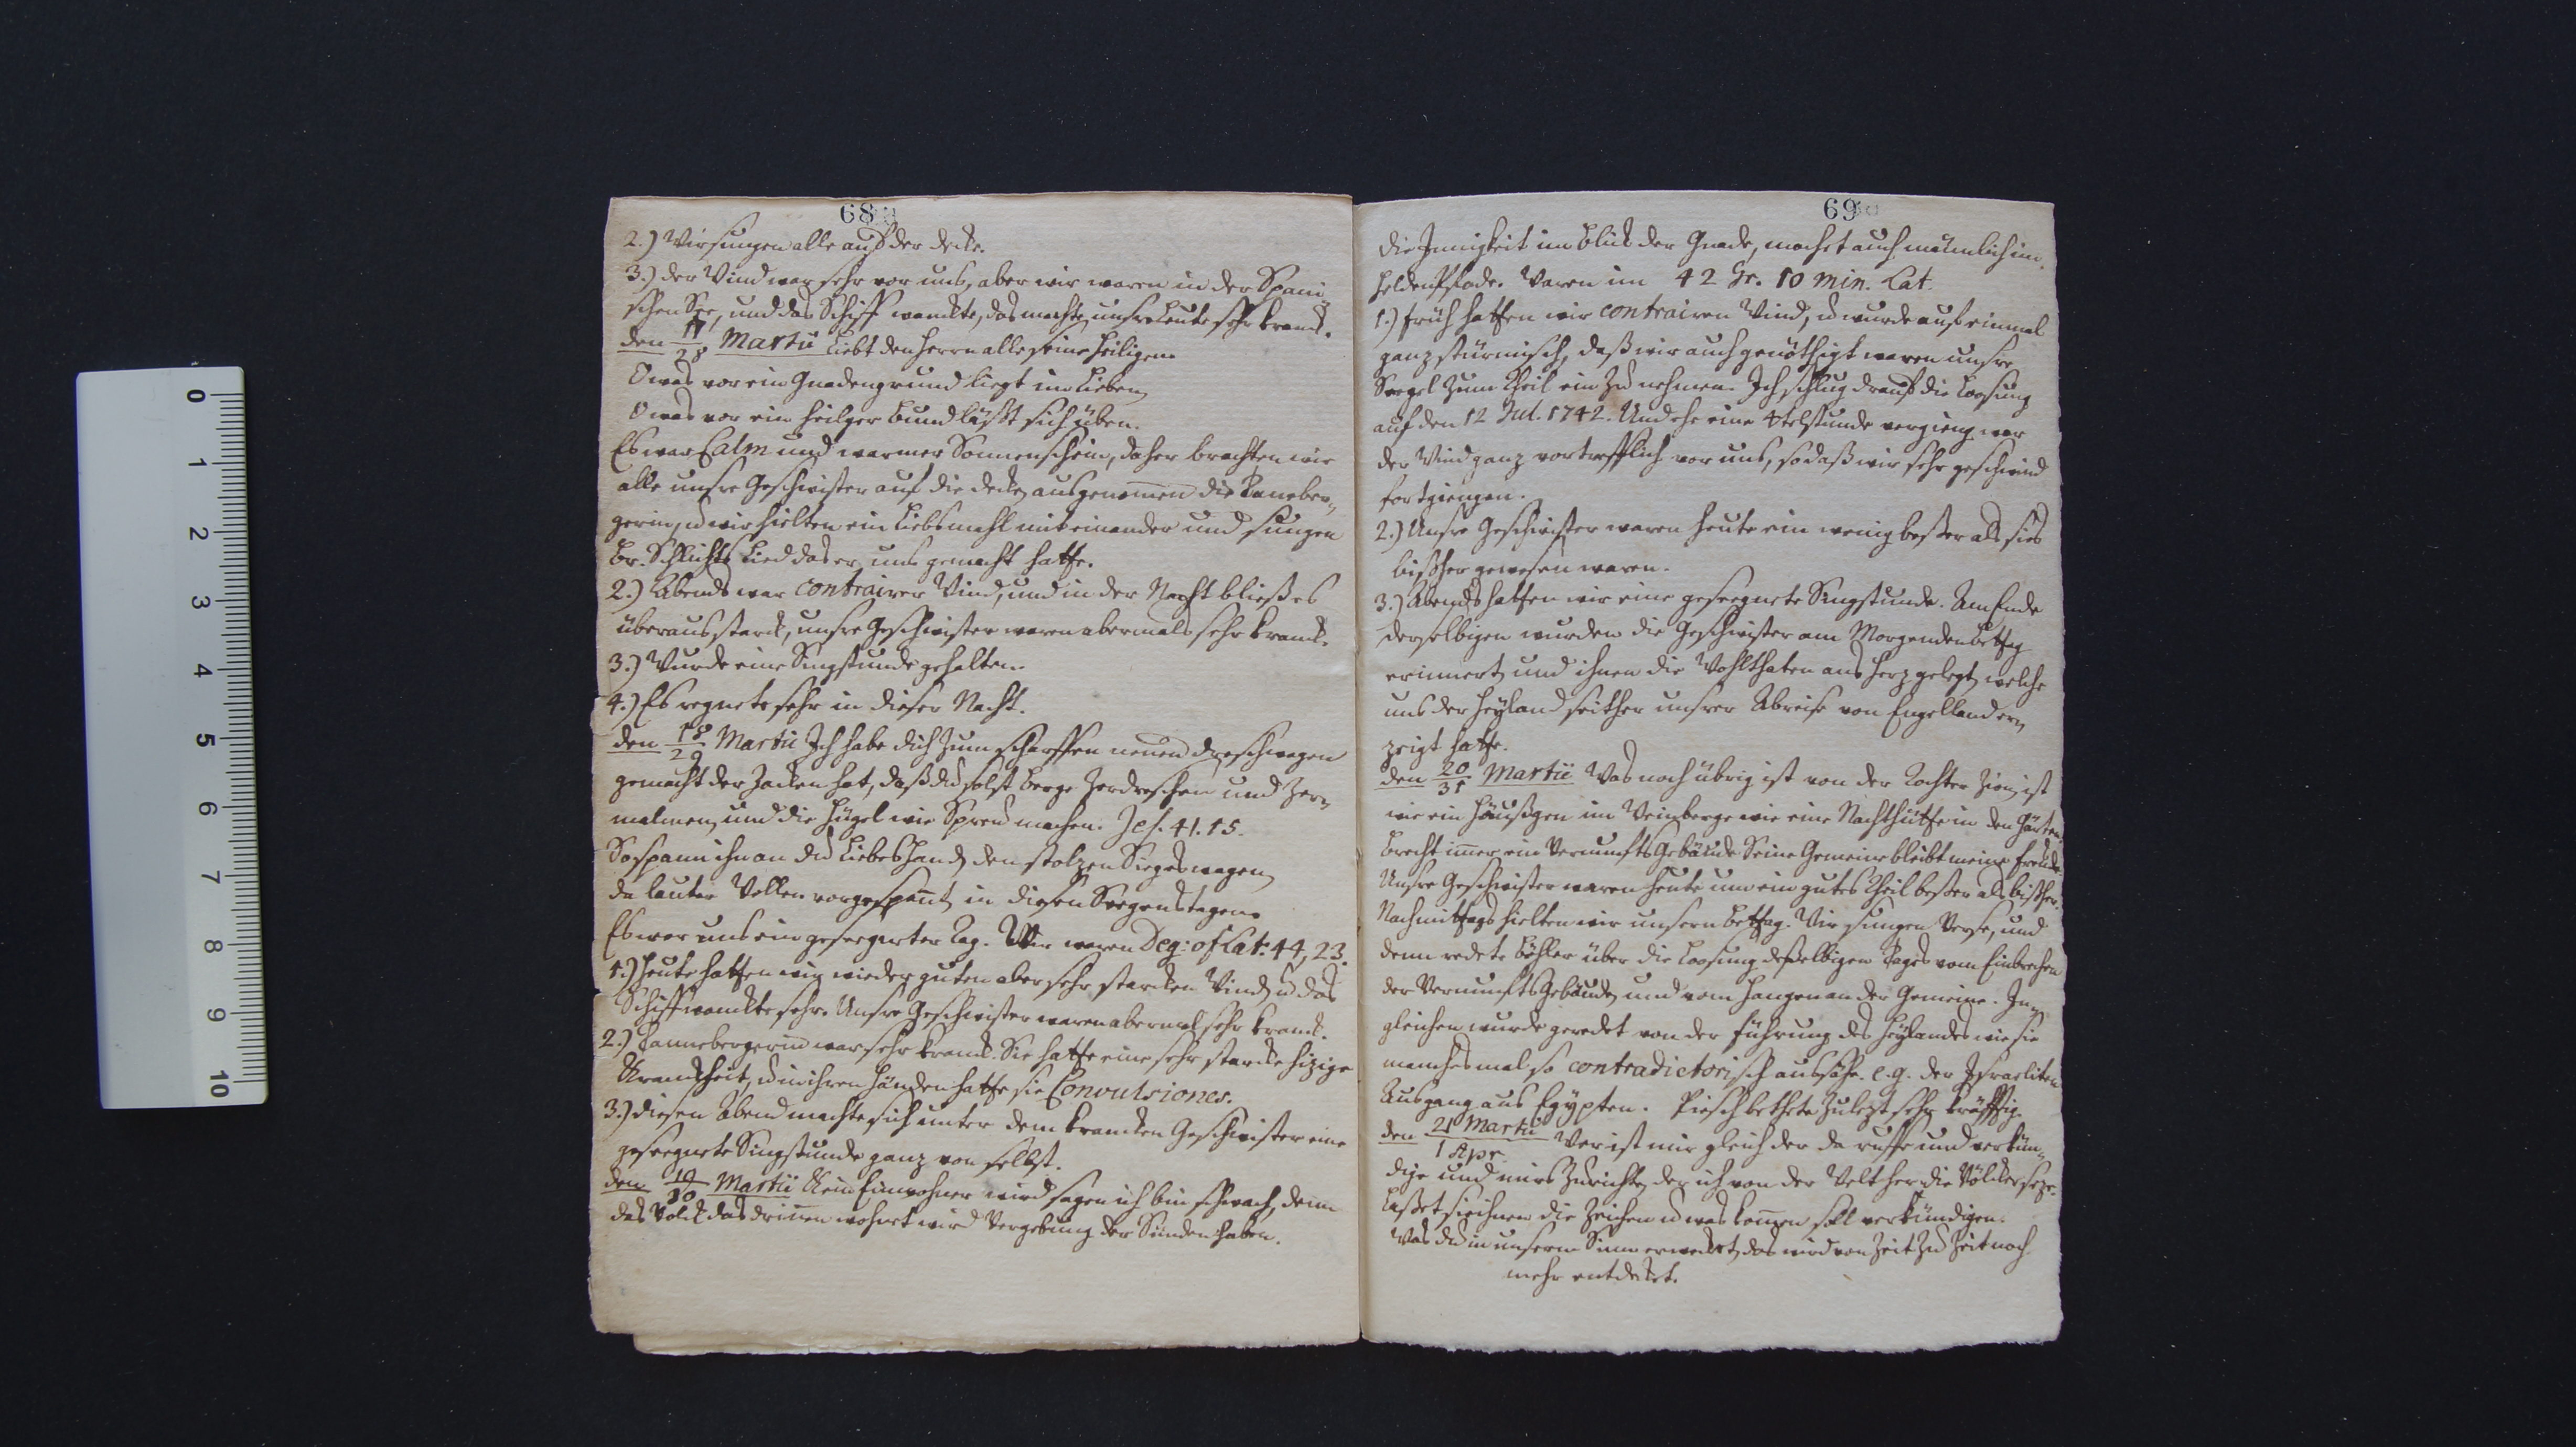 68
2.) Wir sungen alle auf der decke.
3.) der Wind war sehr vor uns, aber wir waren in der Spani-
schen See, und das Schiff wanckte, das machte unsre Leute sehr kranck.
den 17/28 Martii Liebt den Herrn alle seine Heiligen
O was vor ein Gnadengrund liegt im Lieben,
O was vor ein heilger Bund läßt sich üben.
Es war Calm und warmer Sonnenschein, daher brachten wir
alle unsre Geschwister auf die decke, ausgenommen die Taneber-
gerin, u wir hielten ein Liebsmahl mit einander und sungen
Br. Schlichts Lied das er uns gemacht hatte.
2.) Abends war contrairer Wind, und in der Nacht bließ es
überaus starck, unsre Geschwister waren abermals sehr kranck.
3.) Wurde eine Singstunde gehalten.
4.) Es regnete sehr in dieser Nacht.
den 18/29 Martii Ich habe dich zum scharffen neuen dreschwagen
gemacht der Zacken hat, daß du solst Berge zerdreschen und zer-
malmen, und die Hügel wie Spreu machen. Jes. 41. 15.
So spann ihn an du Liebes Hand, den stolzen Siegeswagen,
da lauter Wollen vorgespannt, in diesen Seegenstagen.
Es war uns ein geseegneter Tag. Wir waren Deg: of Lat: 44, 23.
1.) Heute hatten wir wieder guten aber sehr starcken Wind, u das
Schiff wanckte sehr. Unsre Geschwister waren abermal sehr kranck.
2.) Tannebergerin war sehr kranck. Sie hatte eine sehr starcke hizige
Kranckheit, u in ihren Händen hatte sie Convulsiones.
3.) diesen Abend machte sich unter dem krancken Geschwister eine
geseegnete Singstunde ganz von selbst.
den 19/30 Martii Kein Einwohner wird sagen ich bin schwach, denn
das Volck das drinnen wohnet wird Vergebung der Sünden haben.
69
die Innigkeit im Blick der Gnade, machet auch mänlich im
Helden Pfade. Waren im 42 Gr. 10 Min. Lat.
1.) Früh hatten wir contrairen Wind, u wurde auf einmal
ganz stürmisch, daß wir auch genöthigt waren unsre
Seegel zum Theil ein zu nehmen. Ich schlug drauf die Loosung
auf den 12 Jul. 1742. Und ehe eine 4telstunde vergieng war
der Wind ganz vortrefflich vor uns, so daß wir sehr geschwind
fortgiengen.
2.) Unsre Geschwister waren heute ein wenig beßer als sies
bißher gewesen waren.
3.) Abends hatten wir eine geseegnete Singstunde. Am Ende
derselbigen wurden die Geschwister am Morgenden Bettag
erinnert, und ihnen die Wohlthaten ans Herz gelegt, welche
uns der Heyland seither unsrer Abreise von Engelland er-
zeigt hatte.
den 20/31 Martii Was noch übrig ist von der Tochter Zion, ist
wie ein Häußgen im Weinberge wie eine Nachthütte in den Gärten
Brecht immer ein Vernunfts Gebäude Seine Gemeine bleibt meine Freude.
Unsre Geschwister waren heute um ein gutes Theil beßer als bißher.
Nachmittags hielten wir unsern Bettag. Wir sungen Verse, und
denn redete Böhler über die Loosung deßelbigen Tages vom Einbrechen
der Vernunfts Gebäude, und vom Hangen an der Gemeine. In-
gleichen wurde geredet von der Führung des Heylandes wie sie
manchesmal so contradictorisch aussähe. e.g. der Israeliten
Ausgang aus Egypten. Piesch bethete zulezt sehr kräfftig.
den 21 Martii/1 Apr. Wer ist mir gleich der da ruffe und verkün-
dige und mirs zurichte, der ich von der Welt her die Völcker seze.
Laßet sie ihnen die Zeichen u was kommen soll verkündigen.
Was du in unserm Sinn erweckt, das wird von Zeit zu Zeit noch
mehr entdeckt.
0 1 2 3 4 5 6 7 8 9 10